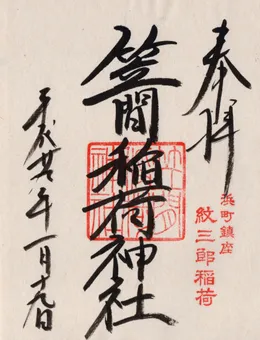 奉拝
浜町鎮座
紋三郎稲荷
笠間稲荷神社
平成廿 年一月十九日